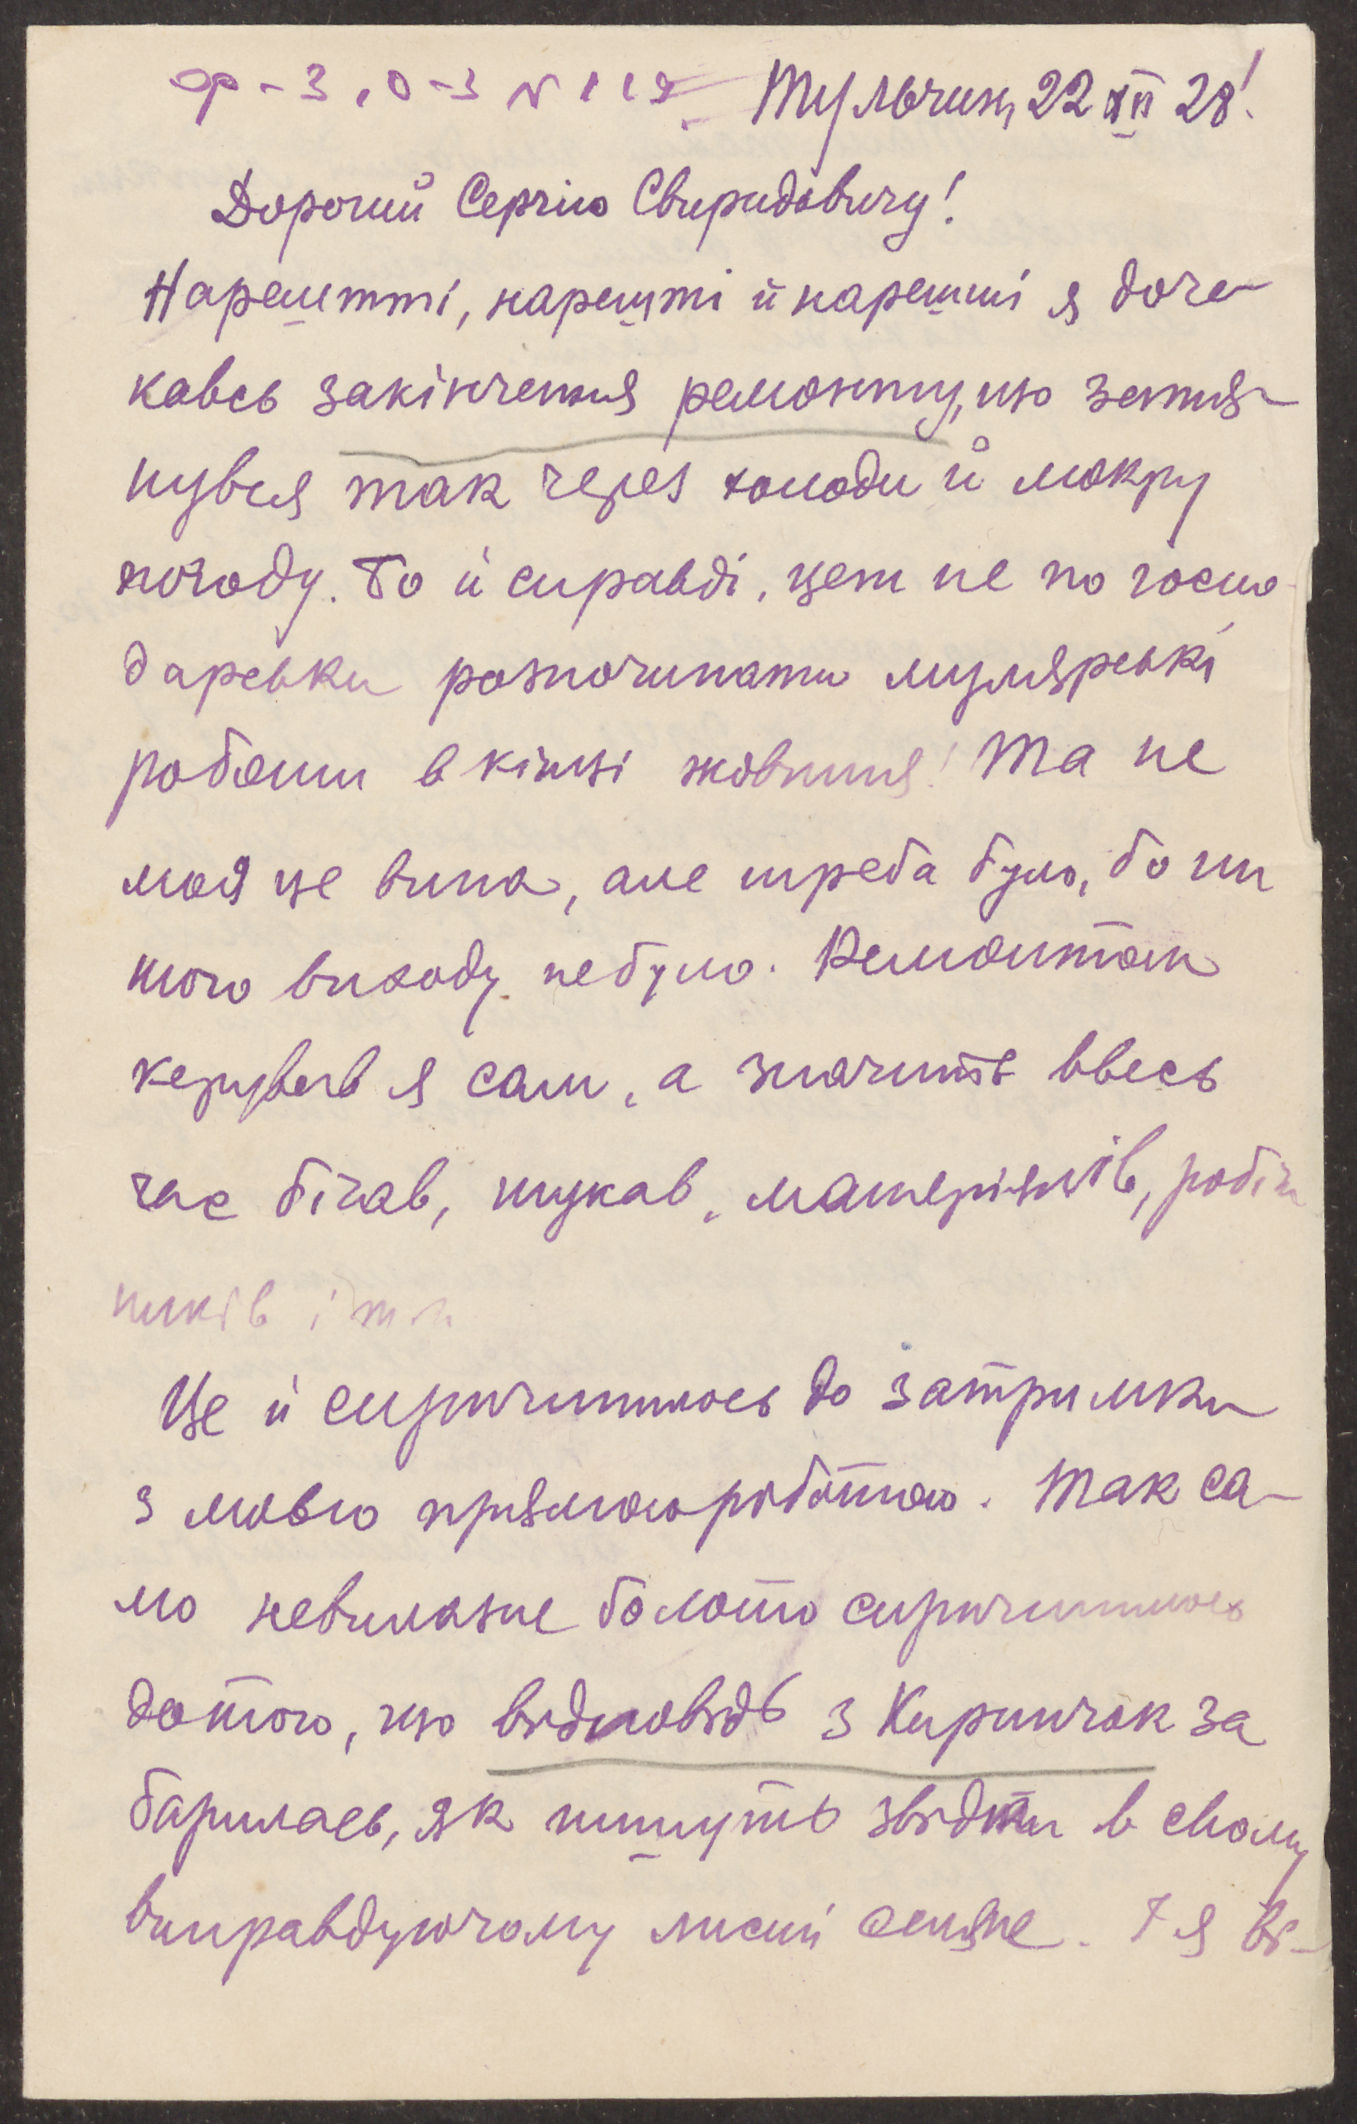 ф-3, о-3 N 112 Тульчин, 22 XII 28!
Дорогий Сергію Свиридовичу!
Нарешті, нарешті й нарешті я доче-
кавсь закінчення ремонту, що затяг-
нувся так через холоди й мокру
погоду. Бо й справді, це ж не по госпо-
дарськи розпочинати мулярські
роботи в кінці жовтня! Та не
моя це вина, але треба було, бо ин
шого виходу не було. Ремонтом
керував я сам, а значить ввесь
час бігав, шукав, матеріялів, робіт
ників і т. п.
Це й спричинилось до затримки
з моєю прямою роботою. Так са-
мо невилазне болото спричинилось
до того, що відповідь з Кирничок за
барилась, як пишуть звідти в свому
виправдуючому листі селяне. І я ві-